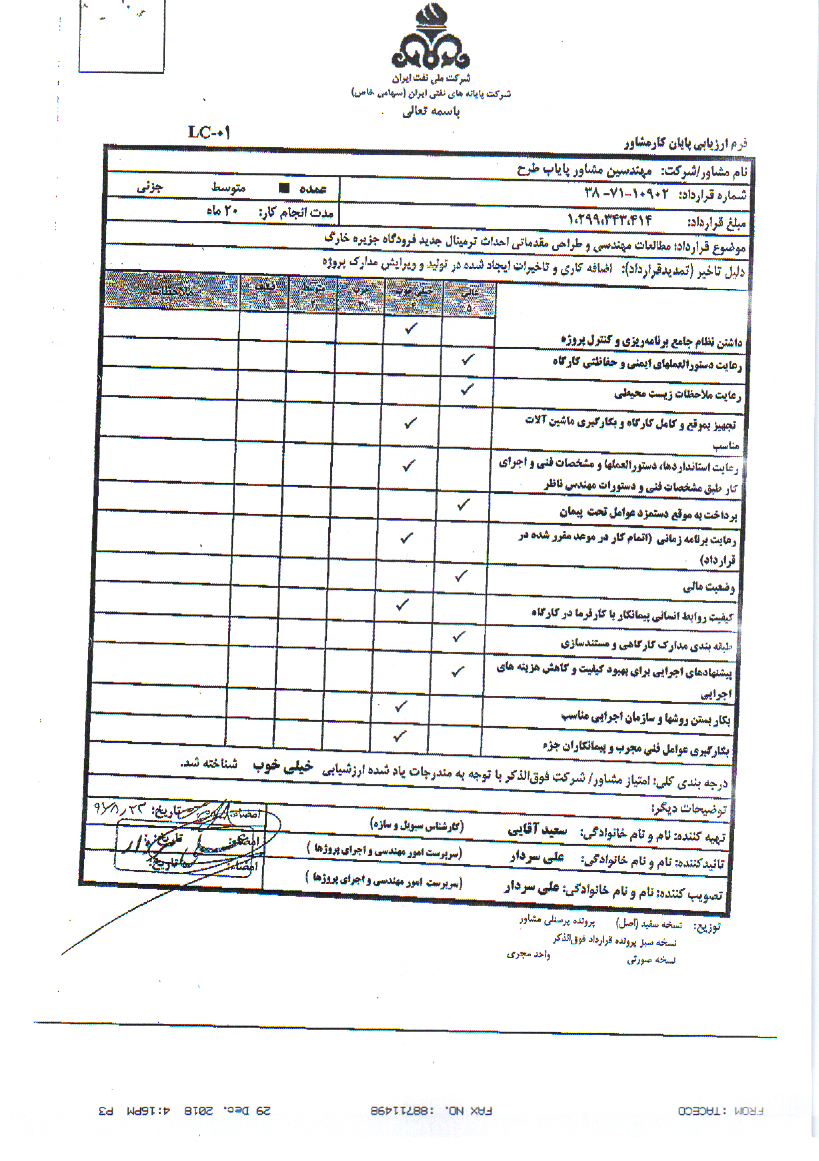 شرکت ملی نفت ایران
شرکت پایانه های نفتی ایران (سهامی خاص)
باسمه تعالی
فرم ارزیابی پایان کارمشاور LC-۰۱
نام مشاور/شرکت: مهندسین مشاور پایاب طرح
شماره قرارداد: ۱۰۹۰۲-۷۱-۳۸ عمده ■ متوسط جزئی
مبلغ قرارداد: ۱،۲۹۹،۳۴۳،۴۱۴ مدت انجام کار: ۲۰ ماه
موضوع قرارداد: مطالعات مهندسی و طراحی مقدماتی احداث ترمینال جدید فرودگاه جزیره خارگ
دلیل تاخیر (تمدیدقرارداد): اضافه کاری و تاخیرات ایجاد شده در تولید و ویرایش مدارک پروژه
عالی خیلی خوب خوب
۵
داشتن نظام جامع برنامه‌ریزی و کنترل پروژه ✓
رعایت دستورالعملهای ایمنی و حفاظتی کارگاه ✓
رعایت ملاحظات زیست محیطی ✓
تجهیز بموقع و کامل کارگاه و بکارگیری ماشین آلات ✓
مناسب
رعایت استانداردها، دستورالعملها و مشخصات فنی و اجرای ✓
کار طبق مشخصات فنی و دستورات مهندس ناظر
پرداخت به موقع دستمزد عوامل تحت پیمان ✓
رعایت برنامه زمانی (اتمام کار در موعد مقرر شده در ✓
قرارداد)
وضعیت مالی ✓
کیفیت روابط انسانی پیمانکار با کارفرما در کارگاه ✓
طبقه بندی مدارک کارگاهی و مستندسازی ✓
پیشنهادهای اجرایی برای بهبود کیفیت و کاهش هزینه های ✓
اجرایی
بکار بستن روشها و سازمان اجرایی مناسب ✓
بکارگیری عوامل فنی مجرب و پیمانکاران جزء ✓
درجه بندی کلی: امتیاز مشاور/ شرکت فوق‌الذکر با توجه به مندرجات یاد شده ارزشیابی خیلی خوب شناخته شد.
توضیحات دیگر:
تهیه کننده: نام و نام خانوادگی: سعید آقایی (کارشناس سیویل و سازه) امضاء: تاریخ: ۹۱/۸/۲۳
تائیدکننده: نام و نام خانوادگی: علی سردار (سرپرست امور مهندسی و اجرای پروژها ) امضاء: تاریخ:
تصویب کننده: نام و نام خانوادگی: علی سردار (سرپرست امور مهندسی و اجرای پروژها ) امضاء: تاریخ:
توزیع: نسخه سفید (اصل) پرونده پرسنلی مشاور
نسخه سبز پرونده قرارداد فوق‌الذکر
نسخه صورتی واحد مجری
FROM :TACECO FAX NO. :88711498 29 Dec. 2018 4:16PM P3